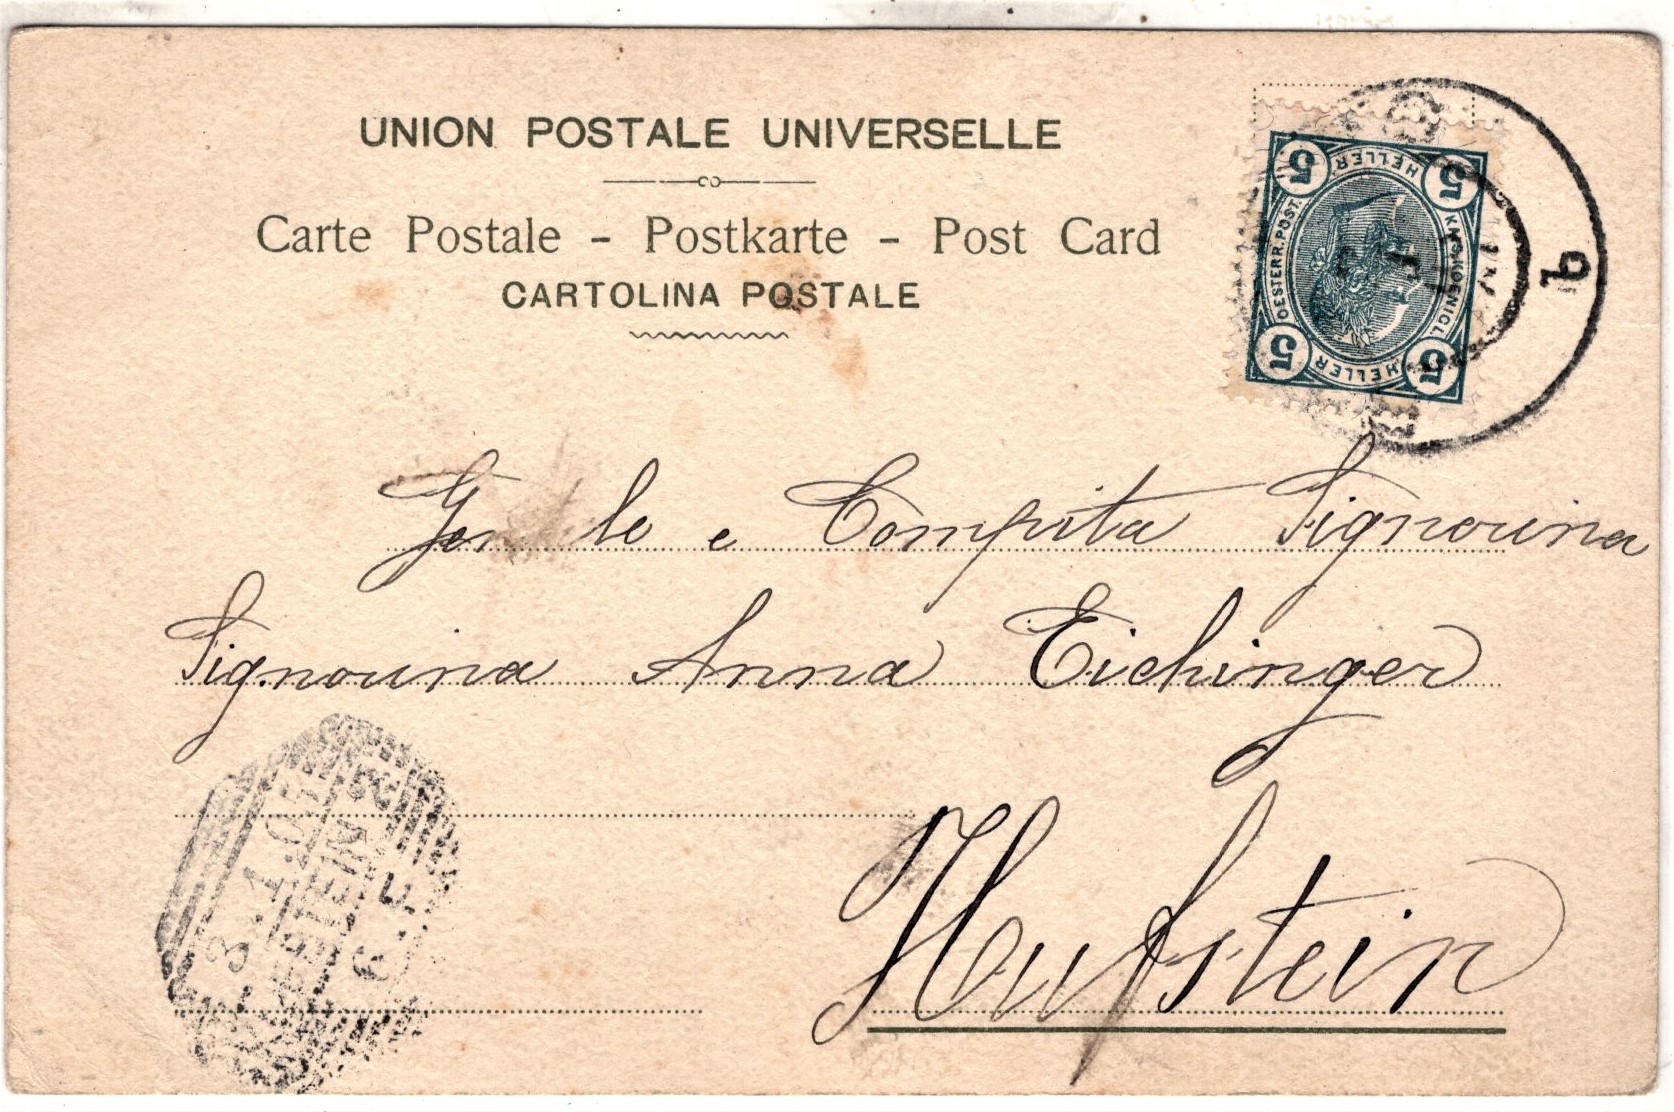 UNION POSTALE UNIVERSELLE
Carte Postale - Postkarte - Post Card
CARTOLINA POSTALE
5 HELLER 5
OESTERR. POST.
KAIS. KOENIGL.
5 HELLER 5
b
e Compita Signorina
Signorina Anna Eichinger
Kufstein
3. 1. 0
6. F